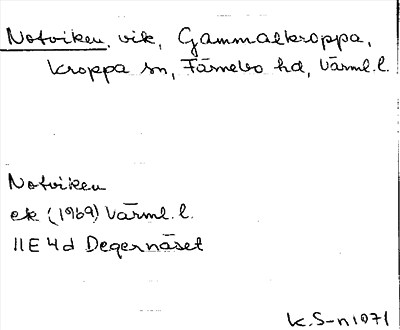 Notviken, vik, Gammalkroppa,
Kroppa sn, Färnebo hd, Värml. l.
Notviken
ek (1969) Värml. l.
11E 4d Degernäset
K. S-n 1971